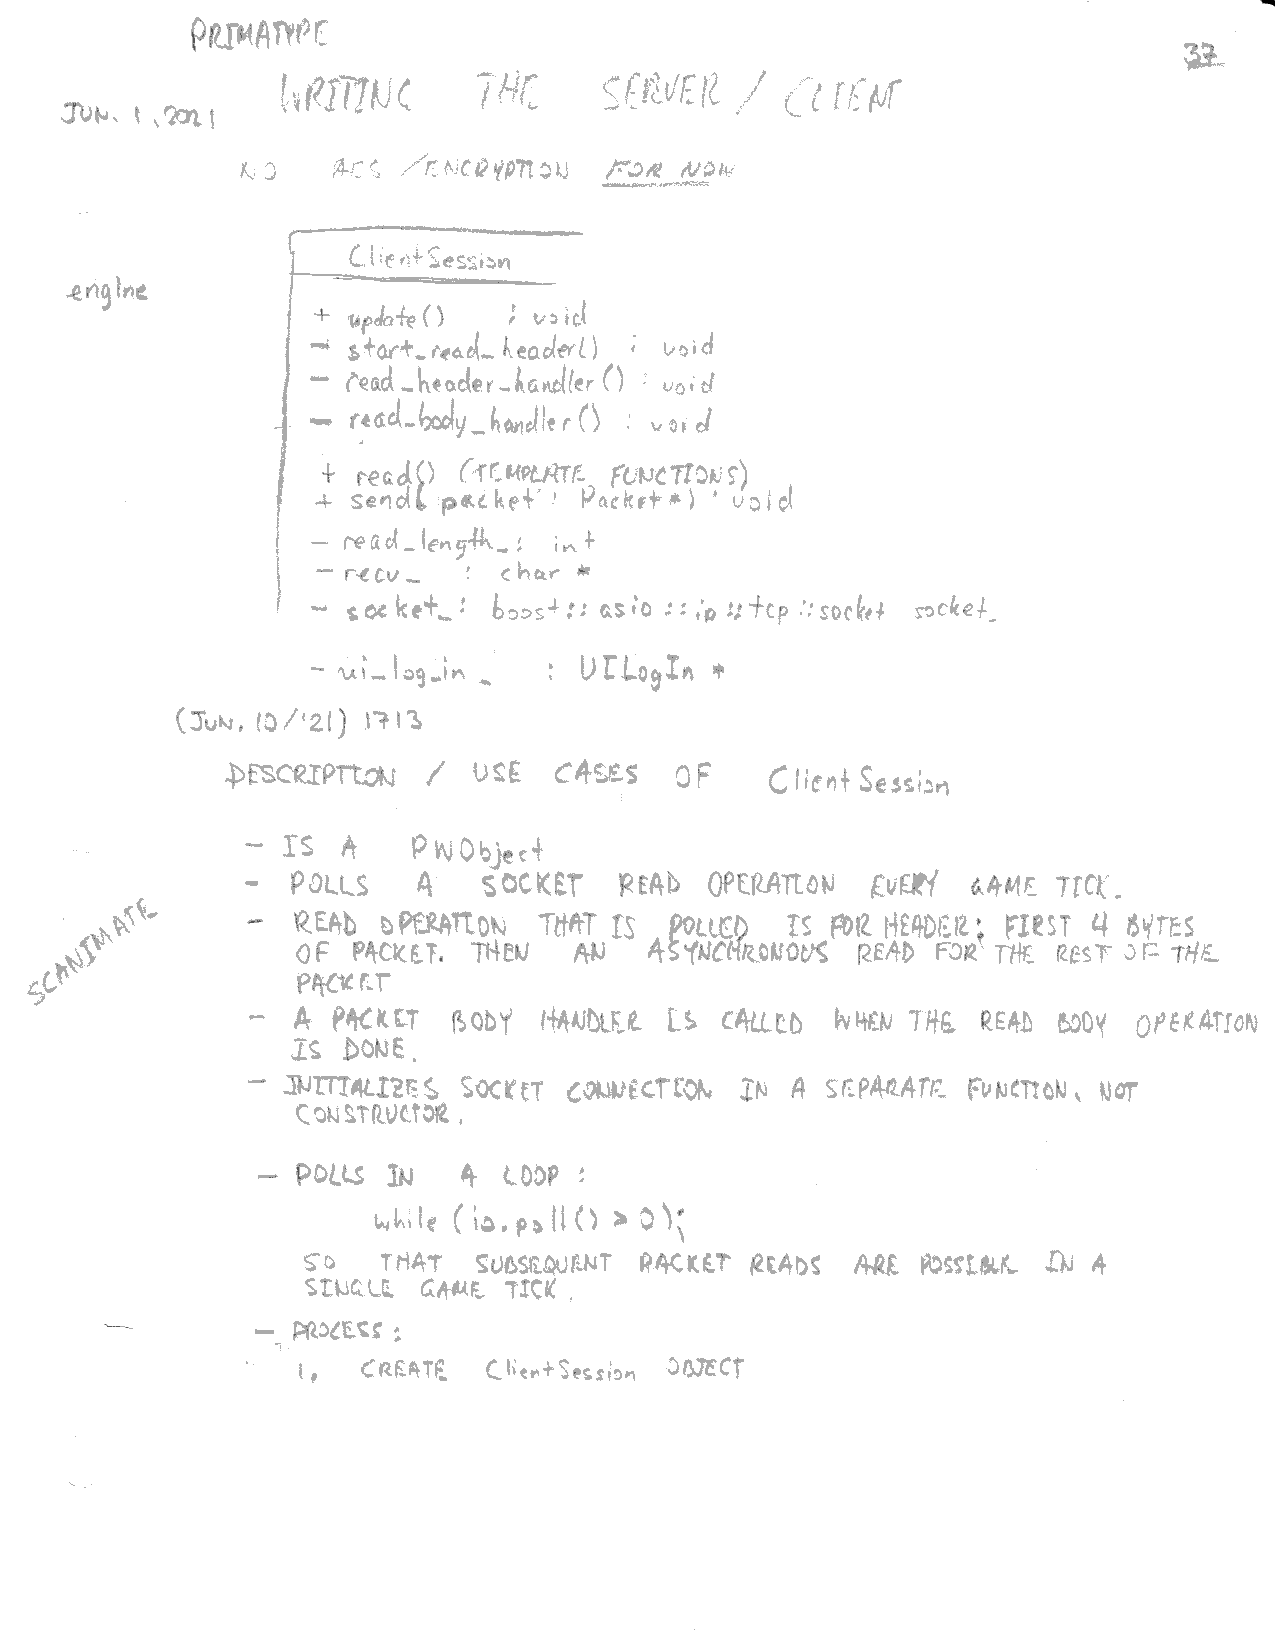 PRIMATYPE
37
WRITING THE SERVER / CLIENT
JUN. 1, 2021
NO AES / ENCRYPTION FOR NOW
ClientSession
engine
+ update() : void
- start_read_header() : void
- read_header_handler() : void
- read_body_handler() : void
+ read() (TEMPLATE FUNCTIONS)
+ send( packet : Packet*) : void
- read_length_ : int
- recv_ : char *
- socket_ : boost::asio::ip::tcp::socket socket_
- ui_log_in_ : UILogIn *
(JUN. 10/'21) 1713
DESCRIPTION / USE CASES OF ClientSession
- IS A PWObject
- POLLS A SOCKET READ OPERATION EVERY GAME TICK.
- READ OPERATION THAT IS POLLED IS FOR HEADER: FIRST 4 BYTES
OF PACKET. THEN AN ASYNCHRONOUS READ FOR THE REST OF THE
PACKET
SCANIMATE
- A PACKET BODY HANDLER IS CALLED WHEN THE READ BODY OPERATION
IS DONE.
- INITIALIZES SOCKET CONNECTION IN A SEPARATE FUNCTION, NOT
CONSTRUCTOR.
- POLLS IN A LOOP :
while (io.poll() > 0);
SO THAT SUBSEQUENT PACKET READS ARE POSSIBLE IN A
SINGLE GAME TICK.
- PROCESS :
1. CREATE ClientSession OBJECT